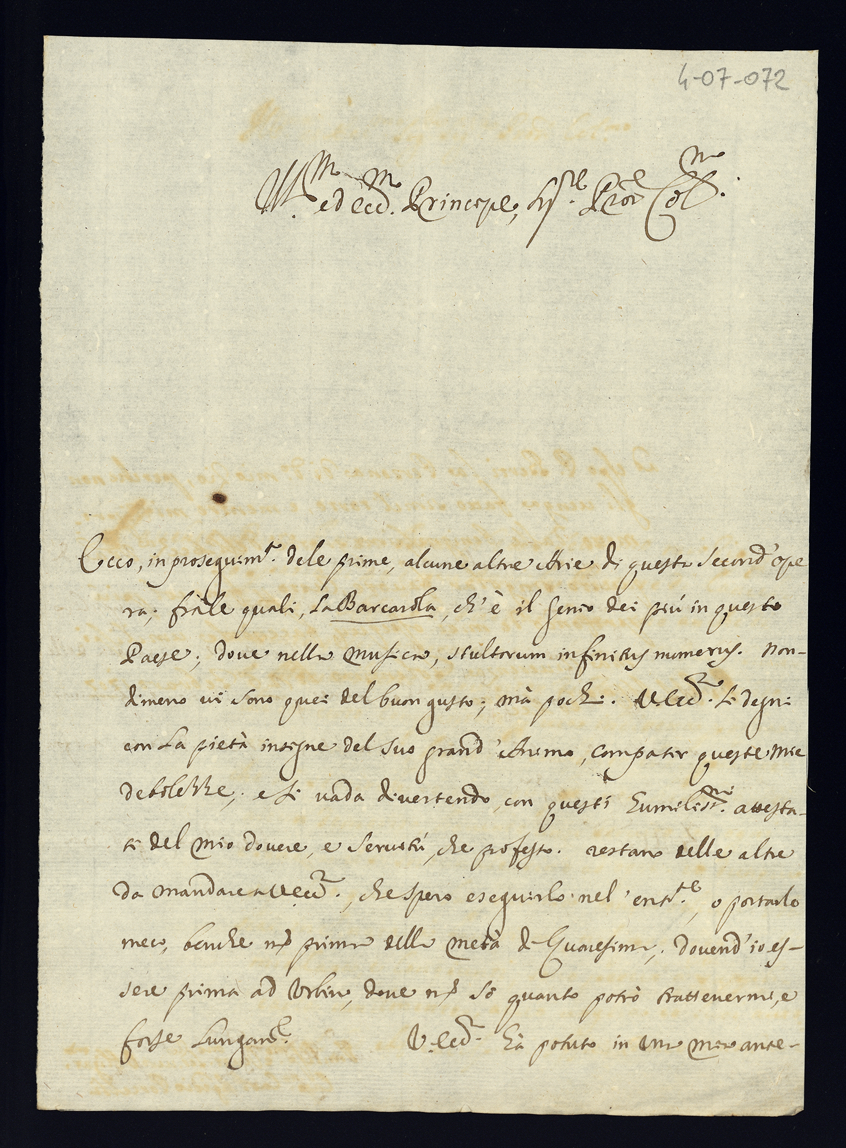 4-07-072
Ill.mo ed ecc.mo Principe, Sig.re Pron.e Col.mo
Ecco, in proseguim.to dele prime, alcune altre Arie di questa second'ope
ra; frale quali, La Barcarola, ch'è il Genio dei piú in questo
Paese; dove nella Musica, stultorum infinitus numerus. Non-
dimeno vi sono quei del buon gusto; mà pochi. V. Ecc.a si degni
con la pietà insigne del suo grand'Animo, compatir queste mie
debolezze; e si vada divertendo, con questi humiliss.mi attesta-
ti del mio dovere, e servitú, che professo. restano delle altre
da mandare a V. Ecc.a, che spero eseguirlo nel'entr.te, o portarlo
meco, benche nō prima della metà di Quaresima; dovend'io es-
sere prima ad Urbin, dove nō só quanto potrò trattenermi, e
forse lungam.te V. Ecc.a hà potuto in una mia ante-